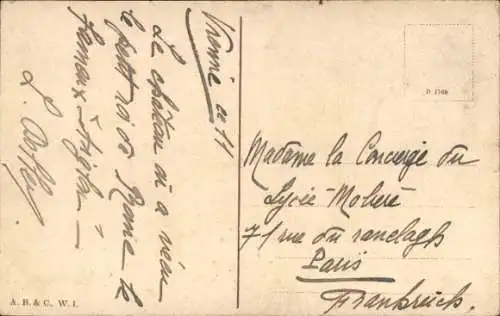 Vienne le 11
Le château où a vécu
le petit roi de Rome le
fameux Aiglon —
D 1708
Madame la Concierge du
Lycée Molière
71 rue du ranelagh
Paris
Frankreich.
A. B. & C. W. I.